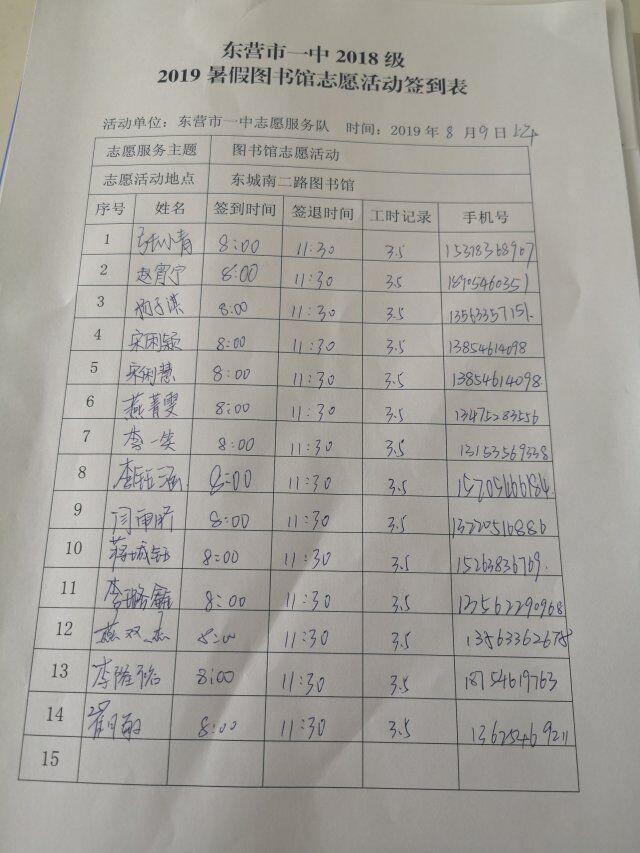 东营市一中 2018 级
2019 暑假图书馆志愿活动签到表
活动单位：东营市一中志愿服务队 时间：2019 年 8 月 9 日 上午
志愿服务主题 图书馆志愿活动
志愿活动地点 东城南二路图书馆
序号 姓名 签到时间 签退时间 工时记录 手机号
1 张小青 8:00 11:30 3.5 15318368907
2 赵宵宁 8:00 11:30 3.5 18905460351
3 8:00 11:30 3.5 13563357151
4 宋闲颖 8:00 11:30 3.5 13854614098
5 宋闲慧 8:00 11:30 3.5 13854614098
6 燕菁雯 8:00 11:30 3.5 13475283556
7 李一笑 8:00 11:30 3.5 13153569338
8 李钰涵 8:00 11:30 3.5
9 8:00 11:30 3.5 13220516886
10 蒋城钰 8:00 11:30 3.5 15263836769
11 李璐鑫 8:00 11:30 3.5
12 燕双杰 8:00 11:30 3.5 13863362678
13 李隆裕 8:00 11:30 3.5 18754619763
14 8:00 11:30 3.5 13625469211
15